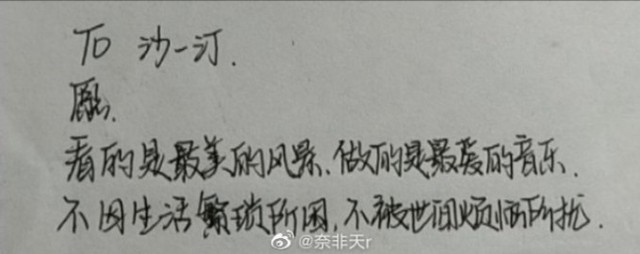 TO 沙一汀.
愿.
看的是最美的风景.做的是最爱的音乐.
不因生活繁琐所困,不被世间烦恼所扰.
@奈非天r